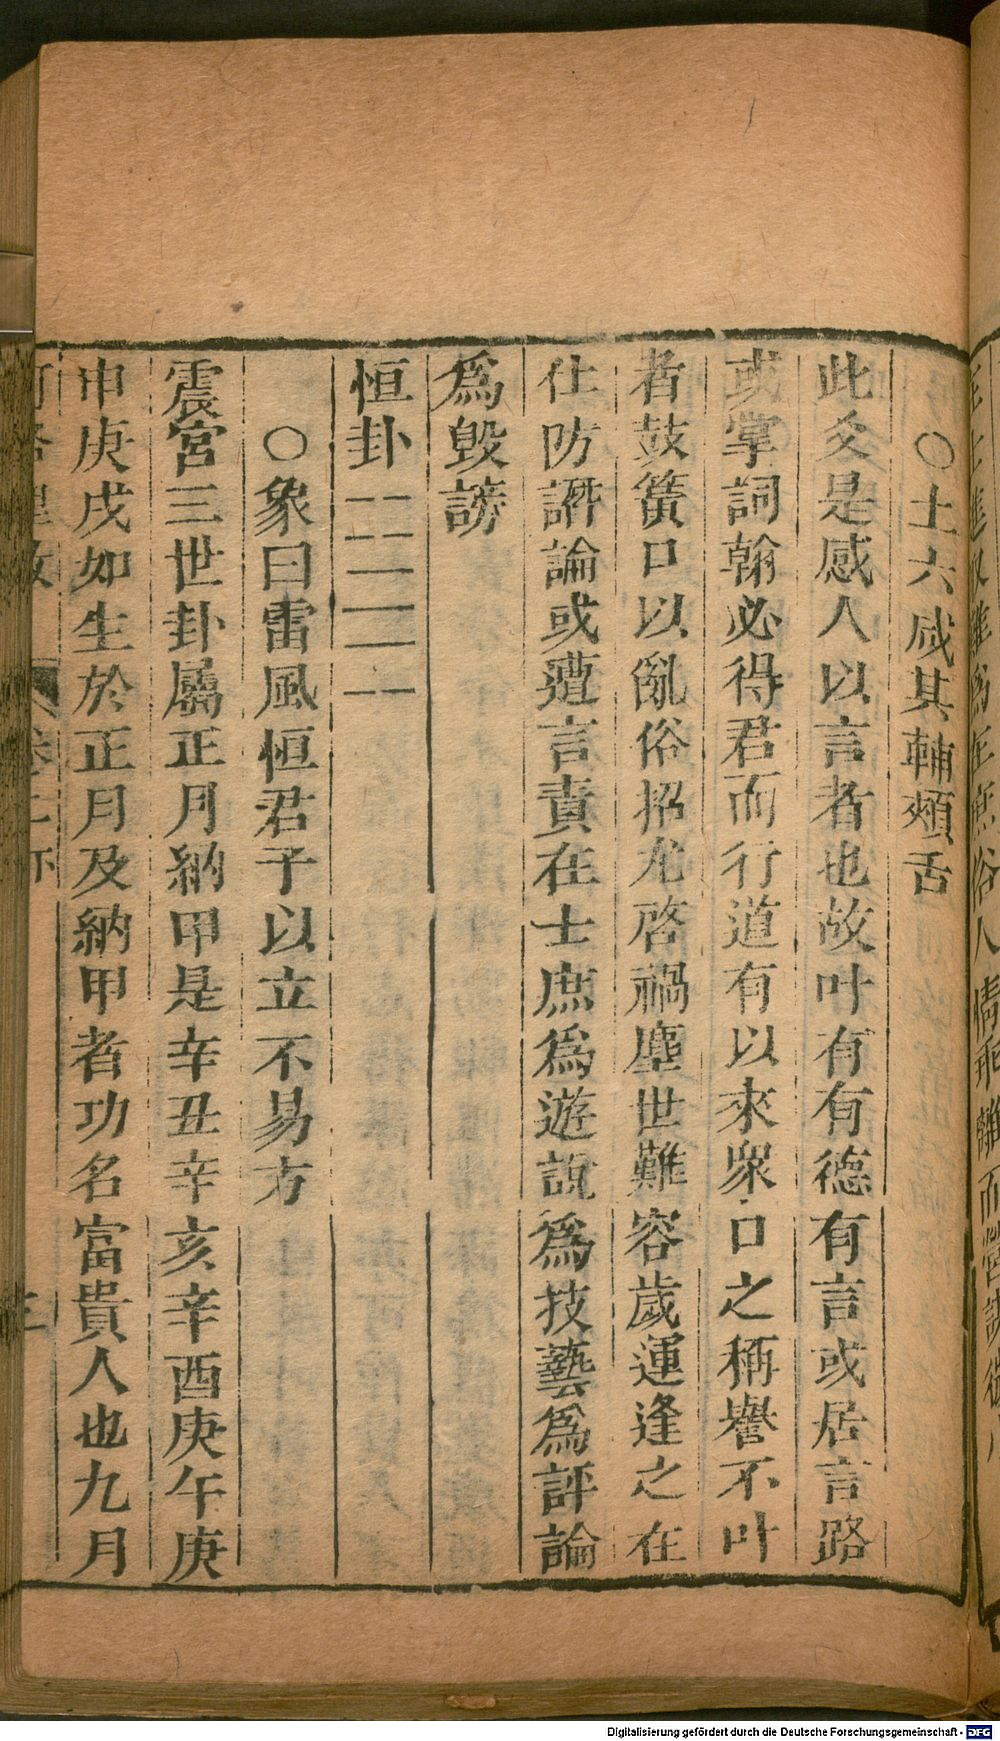 ○上六咸其輔頰舌
此爻是感人以言者也故叶有有德有言或居言路
或掌詞翰必得君而行道有以來衆口之稱譽不叶
者鼓簧口以亂俗招尤啓禍塵世難容歲運逢之在
仕防譖論或遭言責在士庶爲遊說爲技藝爲評論
爲毀謗
恒卦
○象曰雷風恒君子以立不易方
震宮三世卦屬正月納甲是辛丑辛亥辛酉庚午庚
申庚戌如生於正月及納甲者功名富貴人也九月
Digitalisierung gefördert durch die Deutsche Forschungsgemeinschaft - DFG